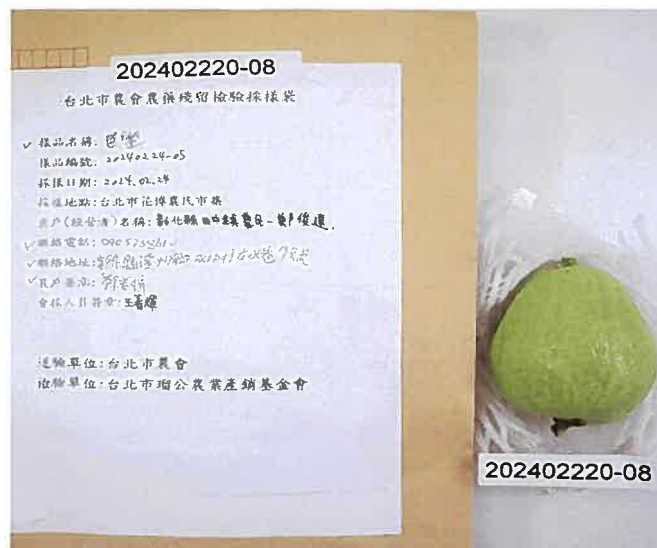 202402220-08
台北市農會農藥殘留檢驗採樣袋
✓ 樣品名稱: 芭樂
樣品編號: 20240224-05
採樣日期: 2024.02.24
採樣地點: 台北市花博農民市集
農戶(經營者)名稱: 彰化縣
✓ 聯絡電話:
✓ 聯絡地址:
✓ 農戶簽章:
會採人員簽章: 王春暉
送驗單位: 台北市農會
檢驗單位: 台北市瑠公農業產銷基金會
202402220-08